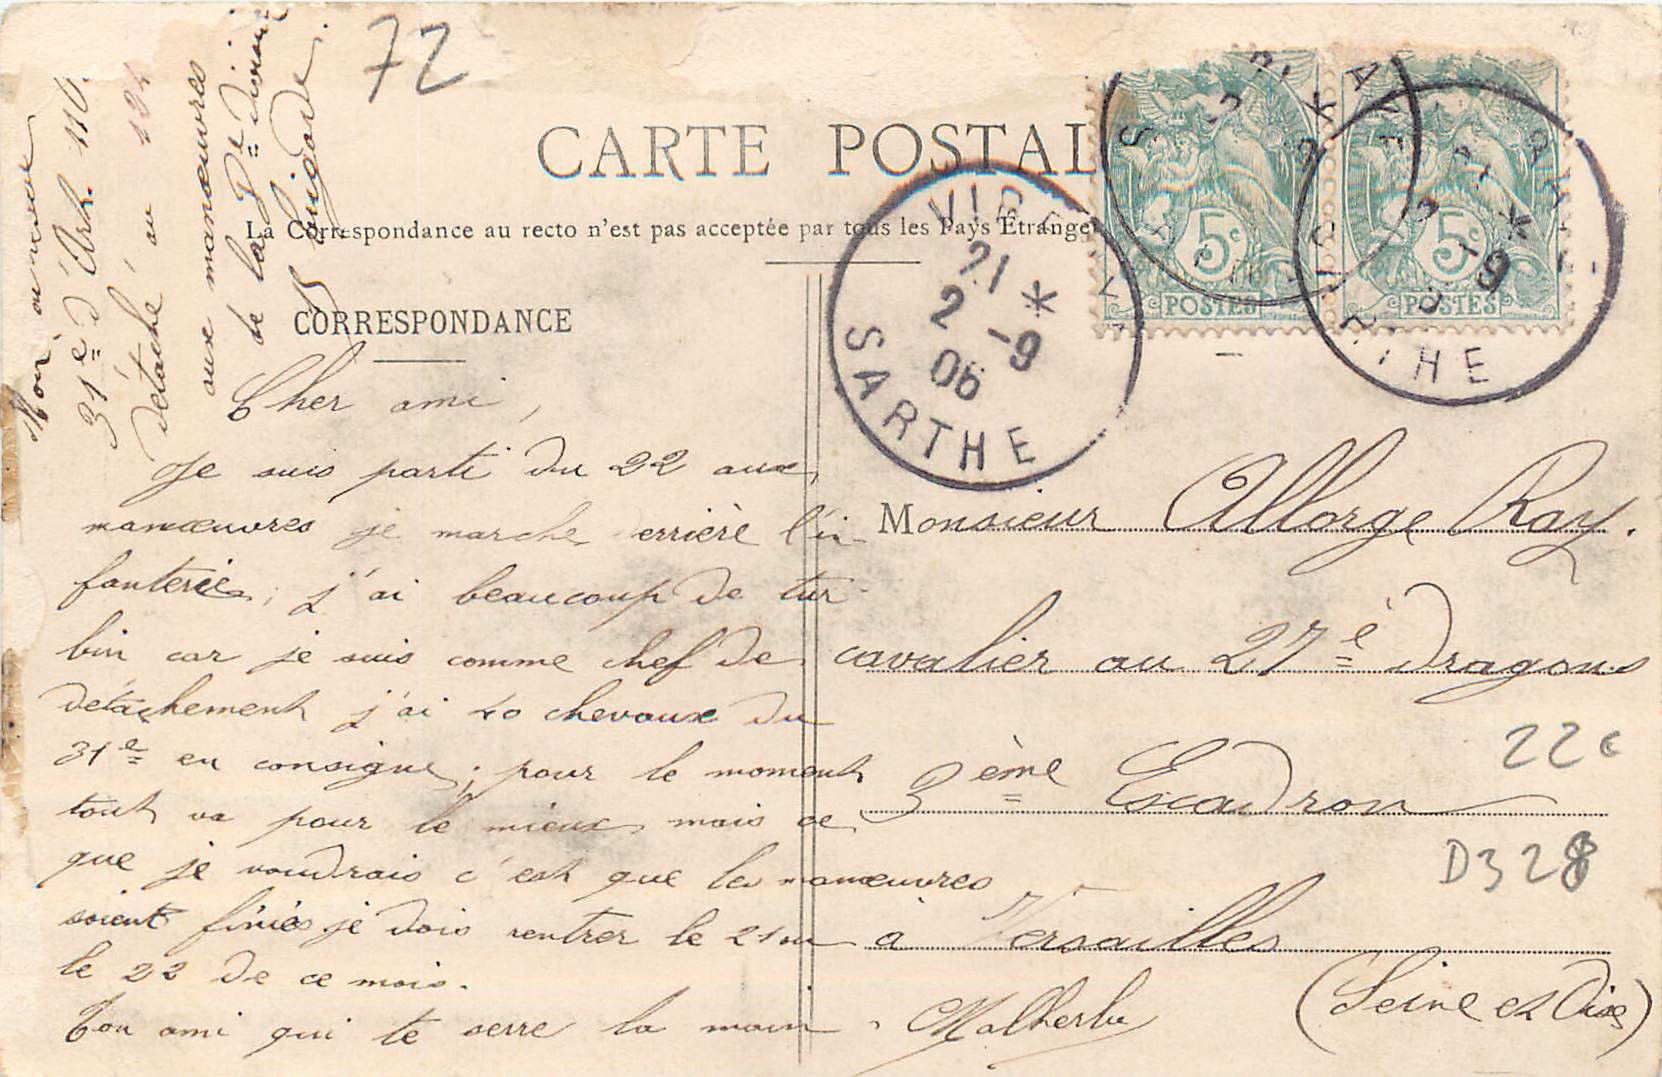 72
CARTE POSTAL
La Correspondance au recto n'est pas acceptée par tous les Pays Etrange
CORRESPONDANCE
Mon adresse
31e d'Art. 116.
détaché au 124
aux manœuvres
de la 8e division
Brigade.
5c
POSTES
5c
POSTES
21 *
2 -9
06
SARTHE
Cher ami,
Je suis parti du 22 aux
manœuvres je marche derrière l'in-
fanterie, j'ai beaucoup de tur-
bin car je suis comme chef de
détachement j'ai 40 chevaux du
31e en consigne; pour le moment
tout va pour le mieux mais ce
que je voudrais c'est que les manœuvres
soient finies je dois rentrer le 21 ou
le 22 de ce mois.
Ton ami qui te serre la main.
Malherbe
Monsieur Allorge Ray.
cavalier au 27e dragons
3ème Escadron
à Versailles
(Seine et Oise)
22c
D328